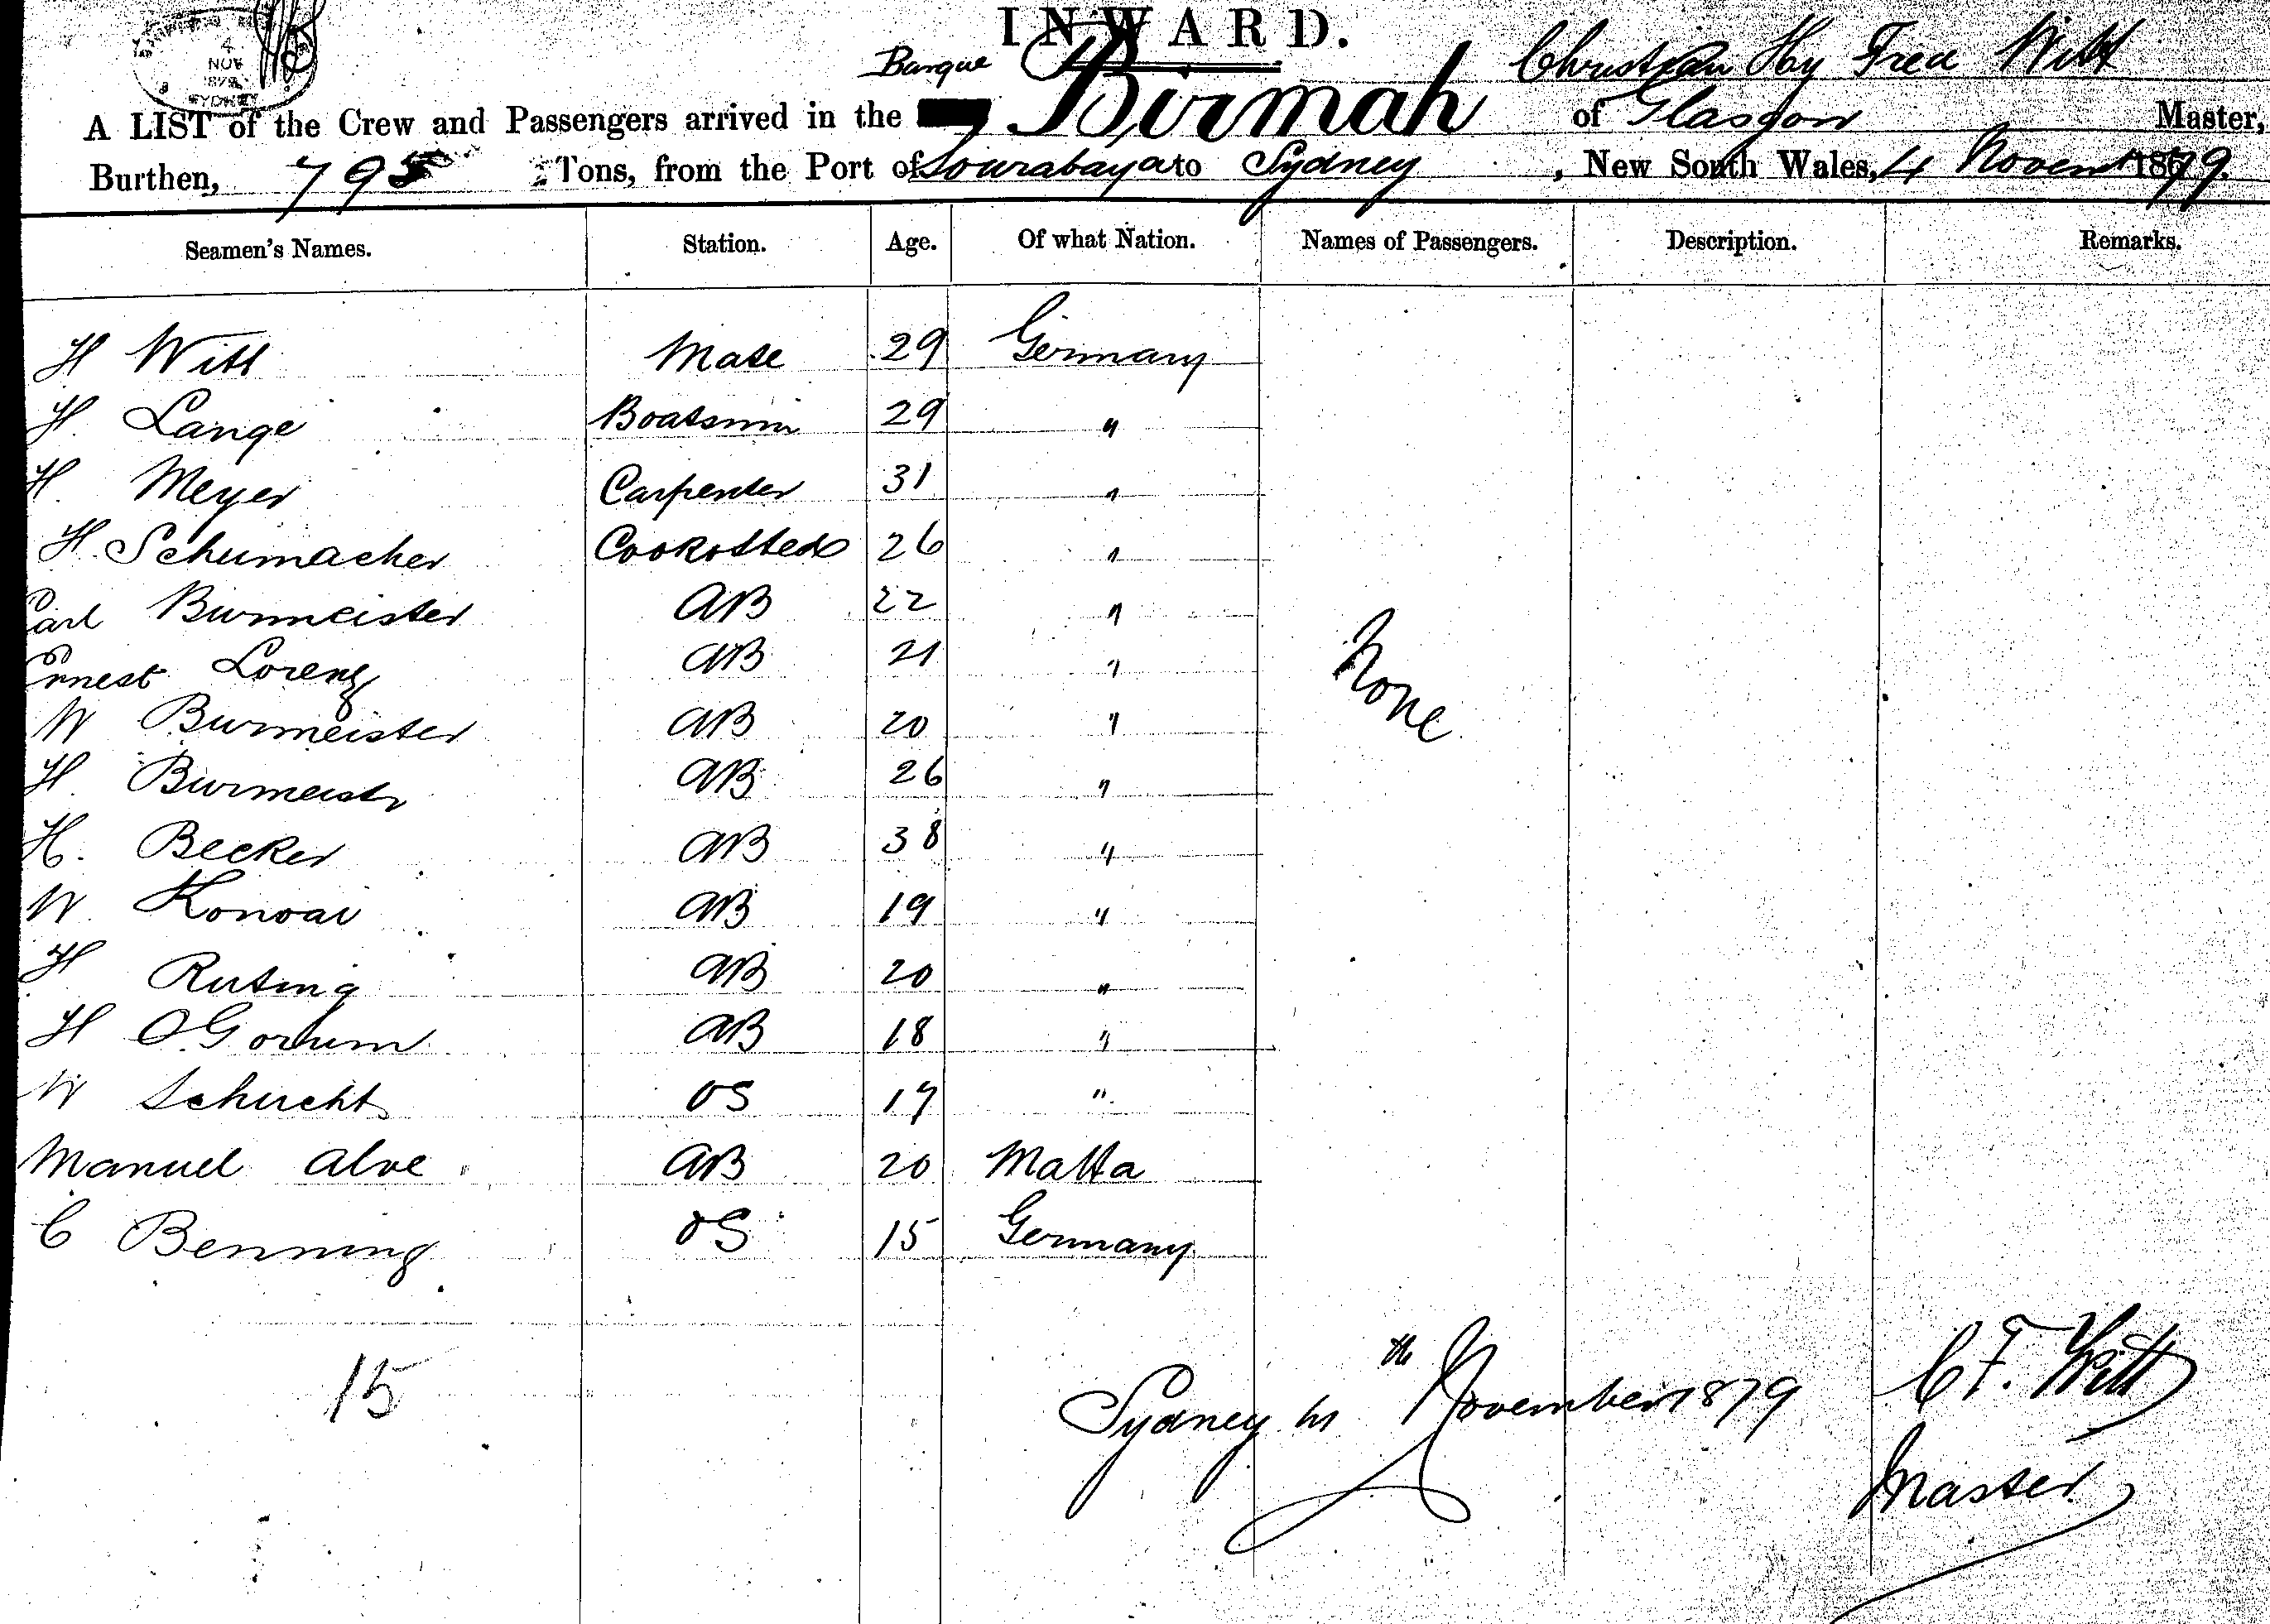 4
NOV
1879
SYDNEY
INWARD.
Barque Birmah Christian Hy Fred Witt
A LIST of the Crew and Passengers arrived in the of Glasgow Master,
Burthen, 795 Tons, from the Port of Sourabaya to Sydney, New South Wales, 4 Novem 1879.
Seamen's Names. Station. Age. Of what Nation. Names of Passengers. Description. Remarks.
H Witt Mate 29 Germany
H. Lange Boatsmn 29 "
H. Meyer Carpenter 31 "
H. Schumacher Cook & Sted 26 "
Carl Burmeister AB 22 "
Ernest Lorenz AB 21 "
None
W Burmeister AB 20 "
H. Burmeistr AB 26 "
H. Becker AB 38 "
W. AB 19 "
H Ruting AB 20 "
H AB 18 "
W Schucht OS 17 "
Manuel Alve AB 20 Malta
C Benning OS 15 Germany
15
Sydney 4th November 1879 C F. Witt
Master